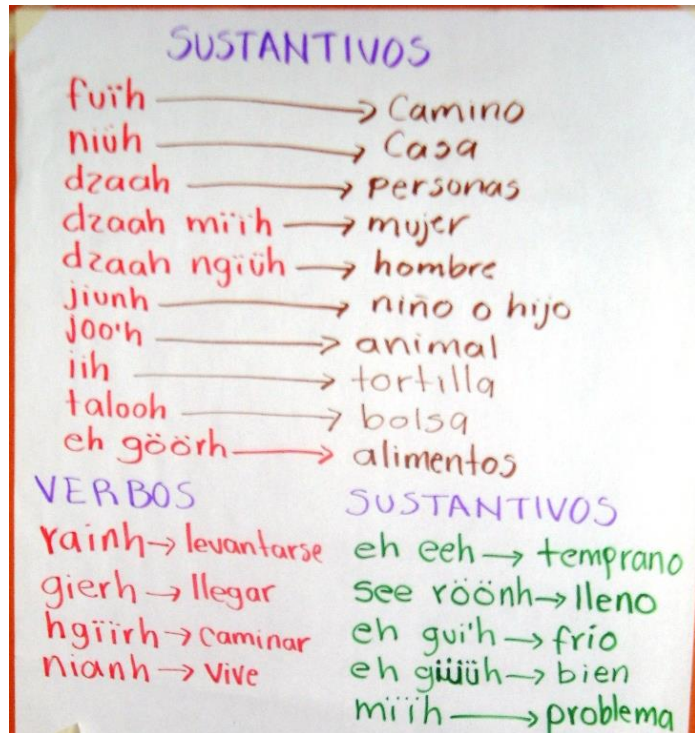 SUSTANTIVOS
fuïh → camino
niüh → Casa
dzaah → personas
dzaah mïïh → mujer
dzaah ngïüh → hombre
jiunh → niño o hijo
joo'h → animal
iih → tortilla
talooh → bolsa
eh göörh → alimentos
VERBOS
rainh → levantarse
gierh → llegar
hgïïrh → caminar
nianh → vive
SUSTANTIVOS
eh eeh → temprano
see röönh → lleno
eh gui'h → frío
eh güüüh → bien
mïïh → problema